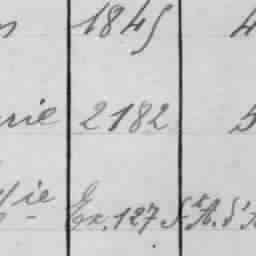 1845 4
rie 2182 5
ie Ex. 127 S. A. d'